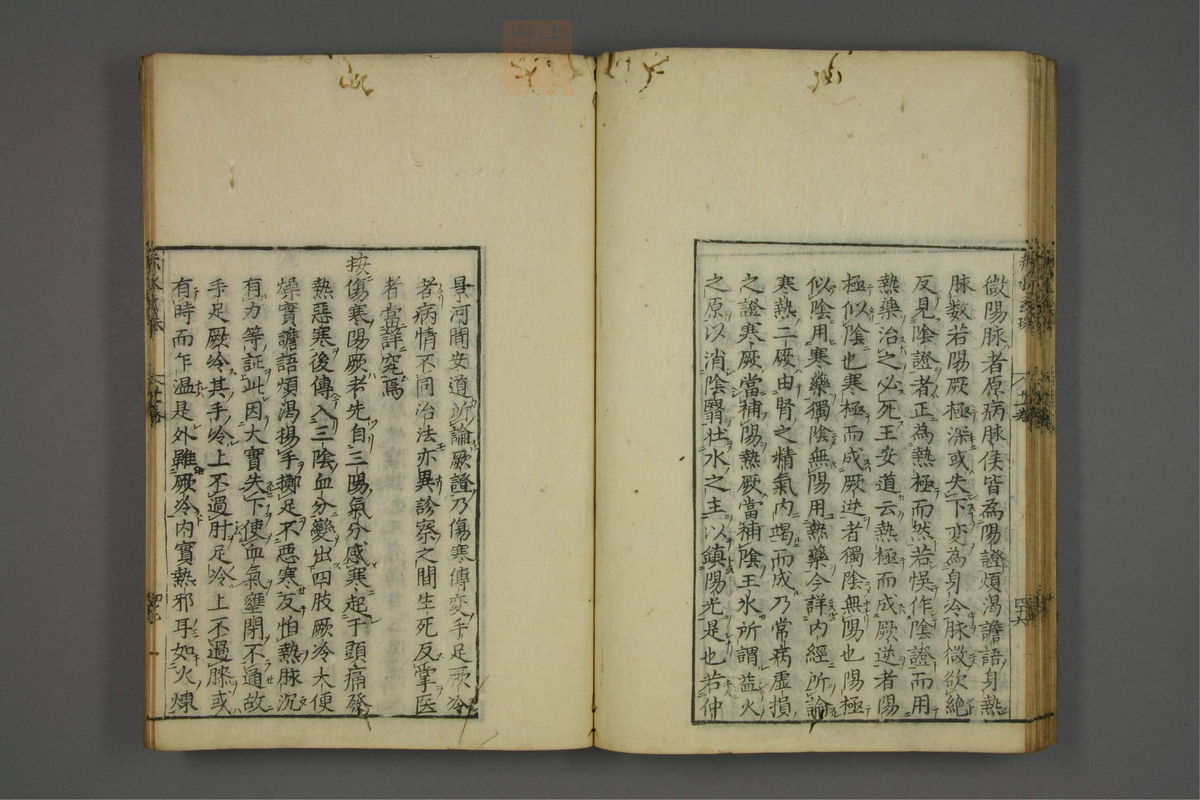 微陽脉者原病脉候皆為陽證煩渴譫語身熱
脉数若陽厥極深或失下変為身冷脉微欲絶
反見陰證者正為熱極而然若悮作陰證而用
熱藥治之必死王安道云熱極而成厥逆者陽
極似陰也寒極而成厥逆者獨陰無陽也陽極
似陰用寒藥獨陰無陽用熱藥今詳内經所論
寒熱二厥由腎之精氣内竭而成乃常病虚損
之證寒厥當補陽熱厥當補陰王氷所謂益火
之原以消陰翳壮水之主以鎮陽光是也若仲
景河間安道所論厥證乃傷寒傳変手足厥冷
者病情不同治法亦異診察之間生死反掌医
者當詳究焉
按傷寒陽厥者先自三陽氣分感寒起于頭痛發
熱惡寒後傳入三陰血分變出四肢厥冷大便
燥實譫語煩渴揚手擲足不惡寒反怕熱脉沉
有力等証此因大實失下使血氣壅閉不通故
手足厥冷其手冷上不過肘足冷上不過膝或
有時而乍温是外雖厥冷内實熱邪耳如火煉